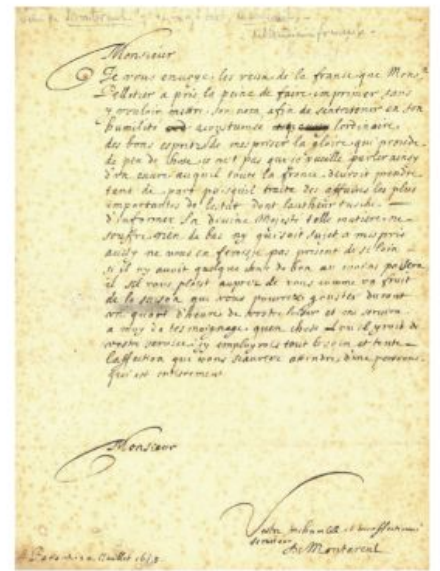 Monsieur
Je vous envoye les vœux de la france que Monsr
Pelletier a pris la peine de faire imprimer, sans
y vouloir mettre son nom afin de sentretenir en son
humilité acoustumée lordinaire
des bons esprits de mespriser la gloire qui procede
de peu de chose ce n'est pas que je veuille parler ainsy
d'un œuvre auquel toute la france devroit prendre
tant de part puisquil traite des affaires les plus
importantes de lestat dont lautheur tasche
d'informer sa divine Majesté telle matiere ne
souffre rien de bas ny qui soit sujet a mespris
aussy ne vous en ferois je pas present de si loin
si il ny avoit quelque chose de bon au moins passera
il sil vous plaist aupres de vous comme un fruit
de la saison que vous pourrez gouster durant
un quart d'heure de vostre loisir et en servira
a moy de tesmoignage quen chose ou il yroit de
vostre service jy employrois tout le soin et toute
laffection que vous scauriez attendre dune personne
qui est entierement
Monsieur
Vostre tres humble et tres affectionné
serviteur
De Montereul
A Paris ce juillet